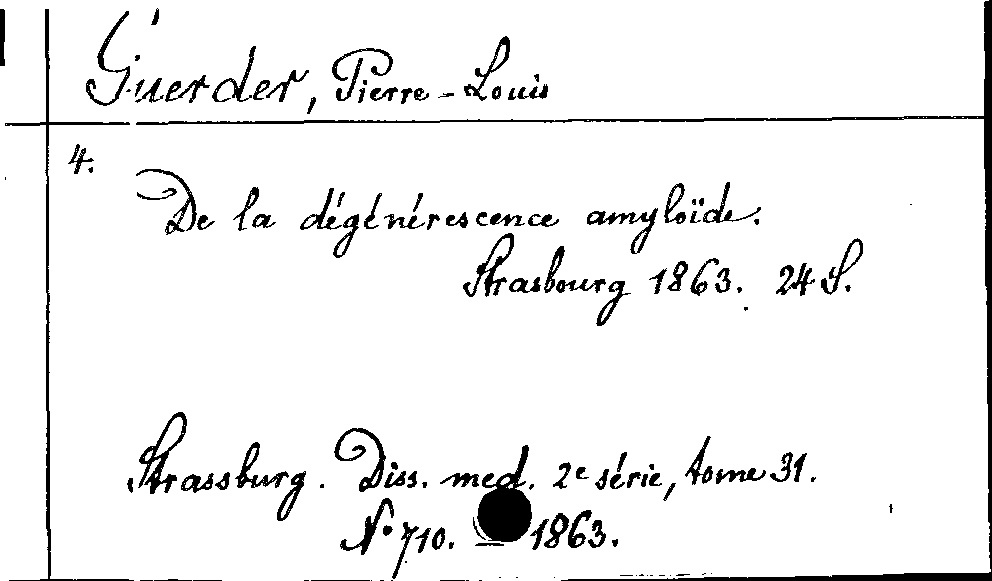 Guerder, Pierre-Louis
4.
De la dégénérescence amyloïde.
Strasbourg 1863. 24 S.
Strassburg. Diss. med. 2e série, tome 31.
No 710. 1863.